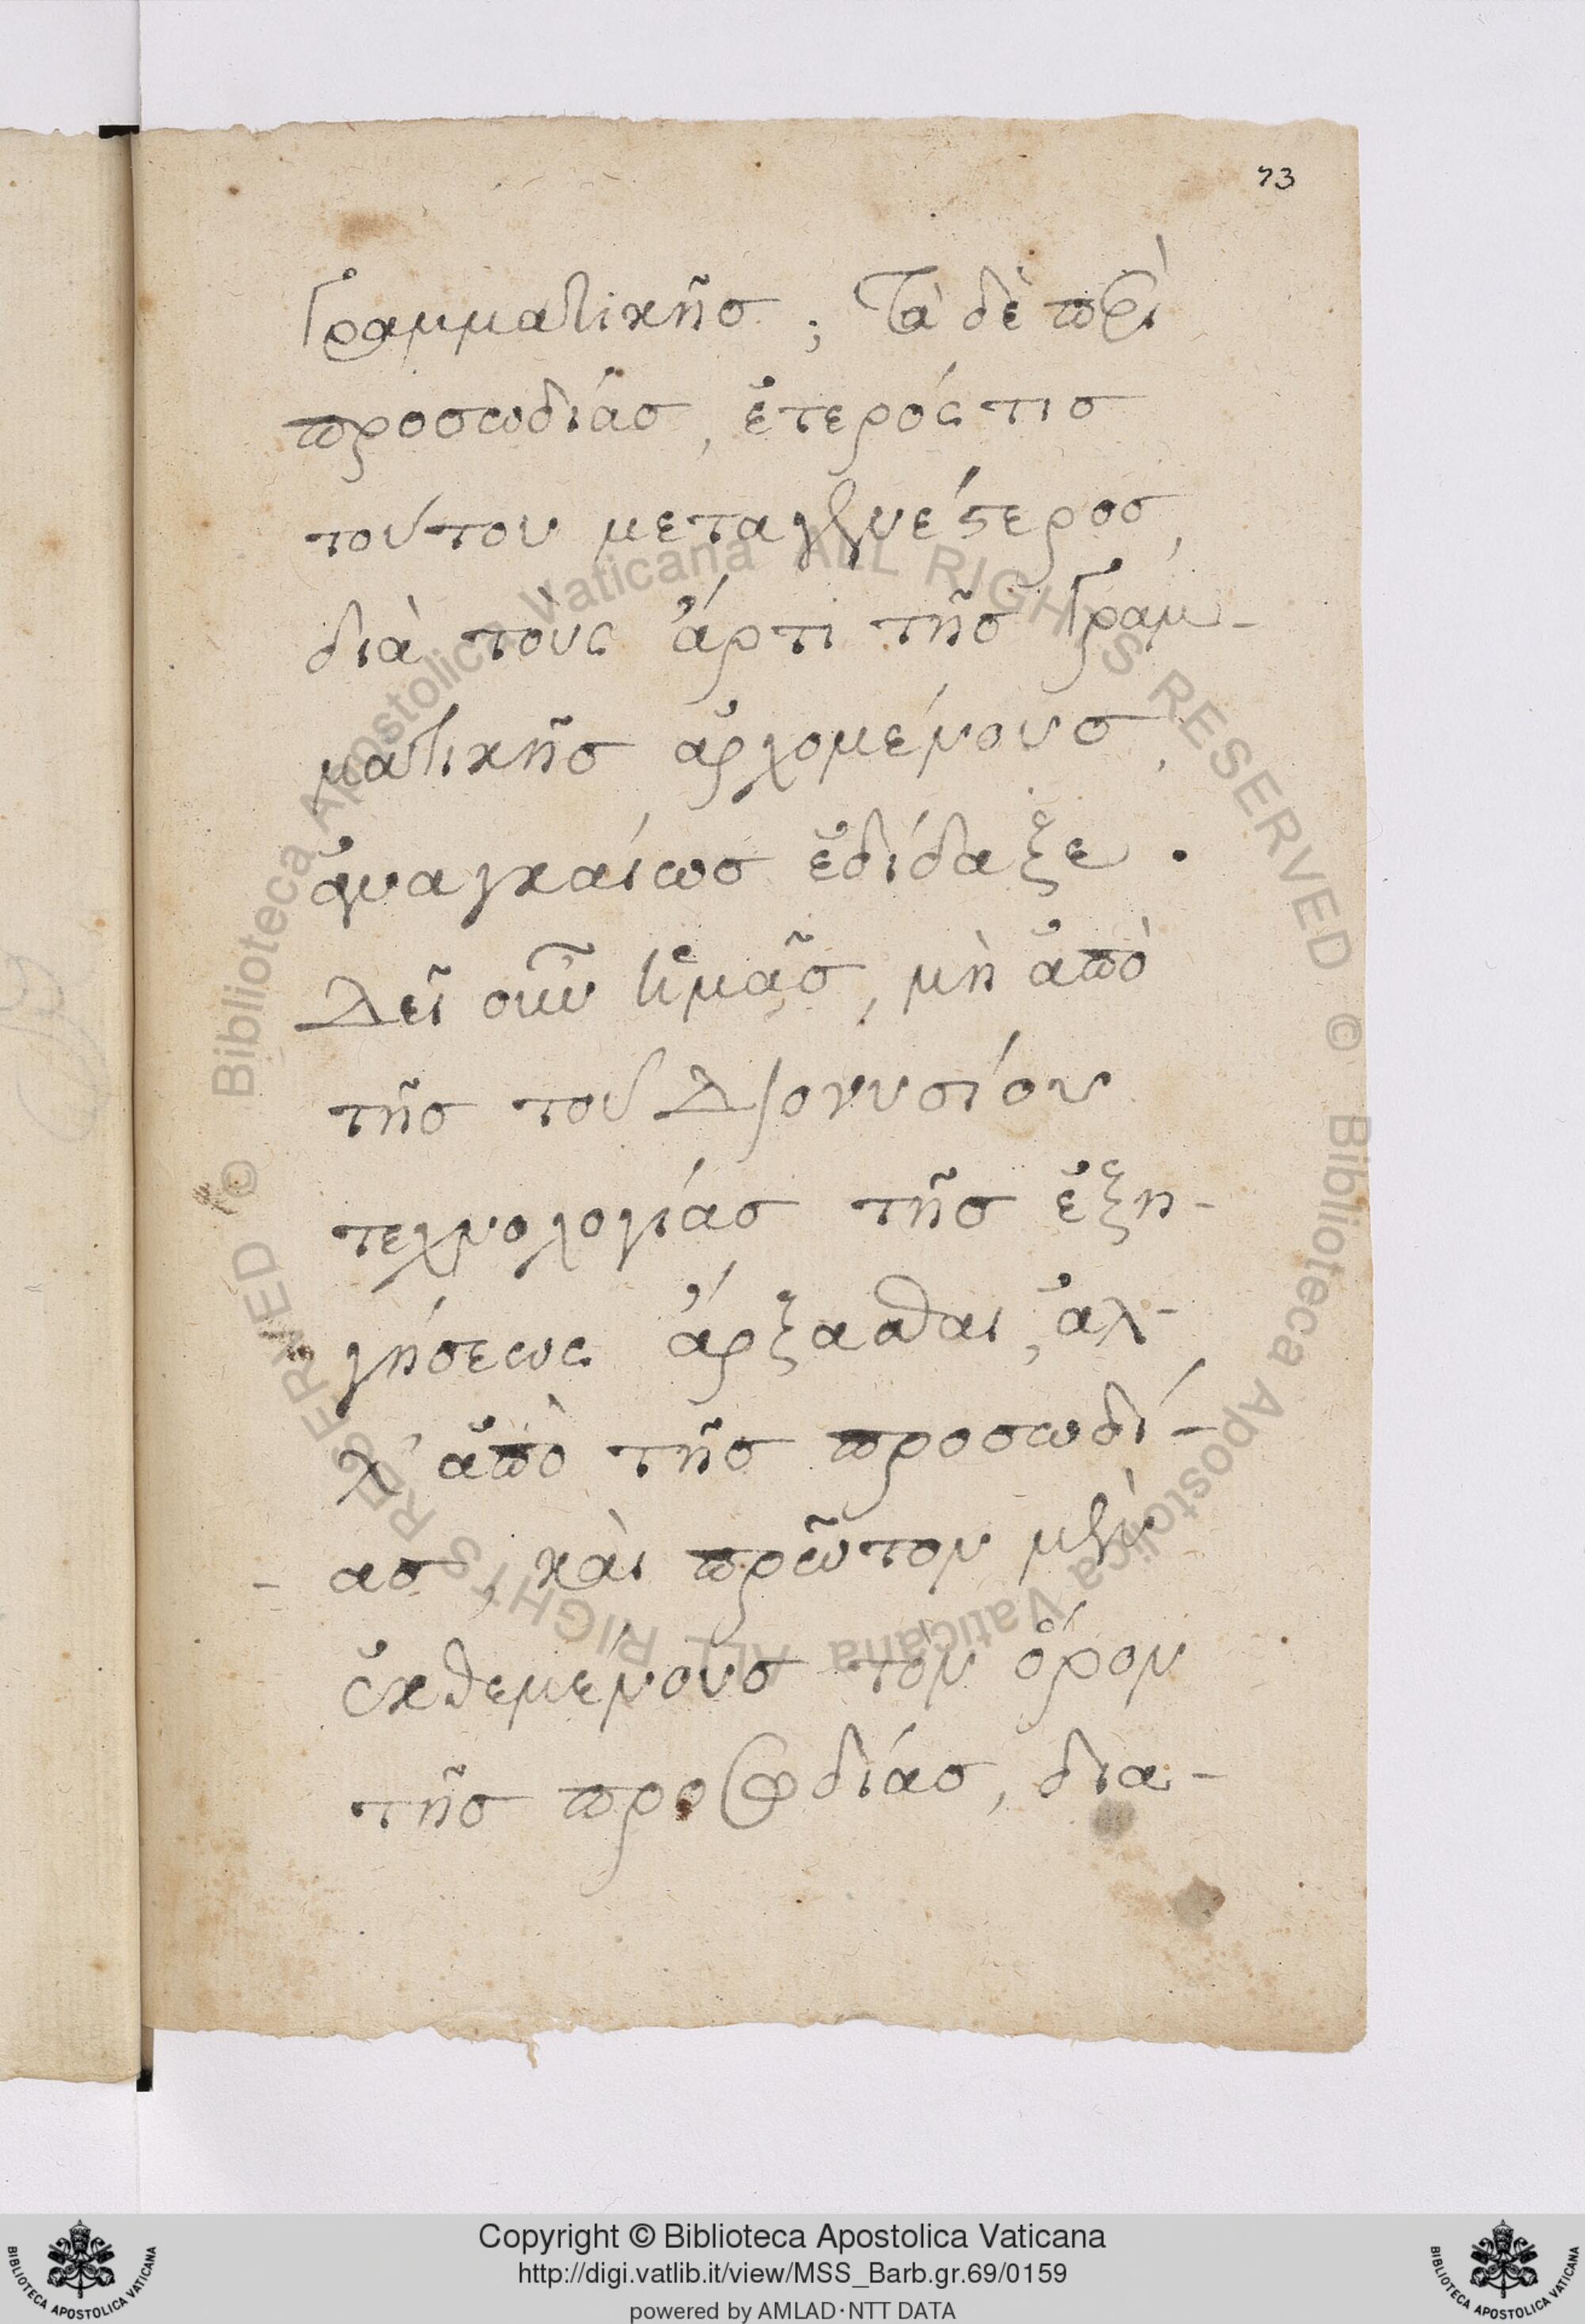 73
Γραμματικῆσ; Τὰ δὲ περὶ
προσωδίασ, ἑτερός τισ
τούτου μεταγενέστεροσ,
διὰ τοὺς ἄρτι τῆσ Γραμ-
ματικῆσ ἀρχομένουσ,
ἀναγκαίωσ ἐδίδαξε.
Δεῖ οὖν ἡμᾶσ, μὴ ἀπὸ
τῆσ τοῦ Διονυσίου
τεχνολογίασ τῆσ ἐξη-
γήσεως ἄρξασθαι, ἀλ-
λ' ἀπὸ τῆσ προσωδί-
- ασ, καὶ πρῶτον μὲν
ἐκθεμένουσ τὸν ὅρον
τῆσ προσωδίασ, δια-
© Biblioteca Apostolica Vaticana ALL RIGHTS RESERVED © Biblioteca Apostolica Vaticana ALL RIGHTS RESERVED
Copyright © Biblioteca Apostolica Vaticana
http://digi.vatlib.it/view/MSS_Barb.gr.69/0159
powered by AMLAD·NTT DATA
BIBLIOTECA APOSTOLICA VATICANA
BIBLIOTECA APOSTOLICA VATICANA